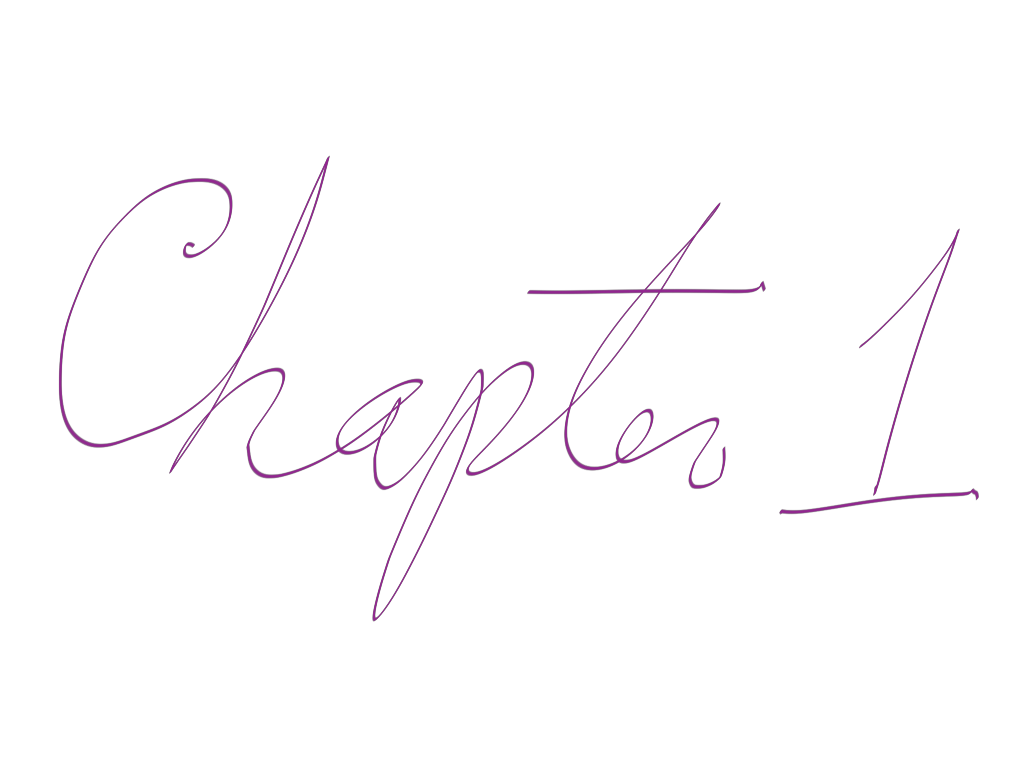 Chapter 1